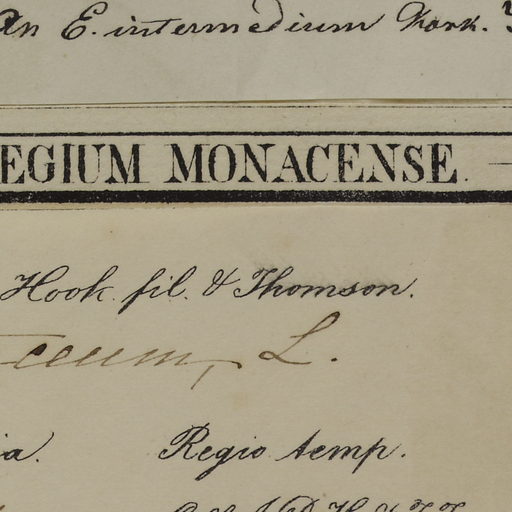 An E. intermedium
EGIUM MONACENSE.
Hook. fil. & Thomson.
ceum, L.
ia. Regio temp.